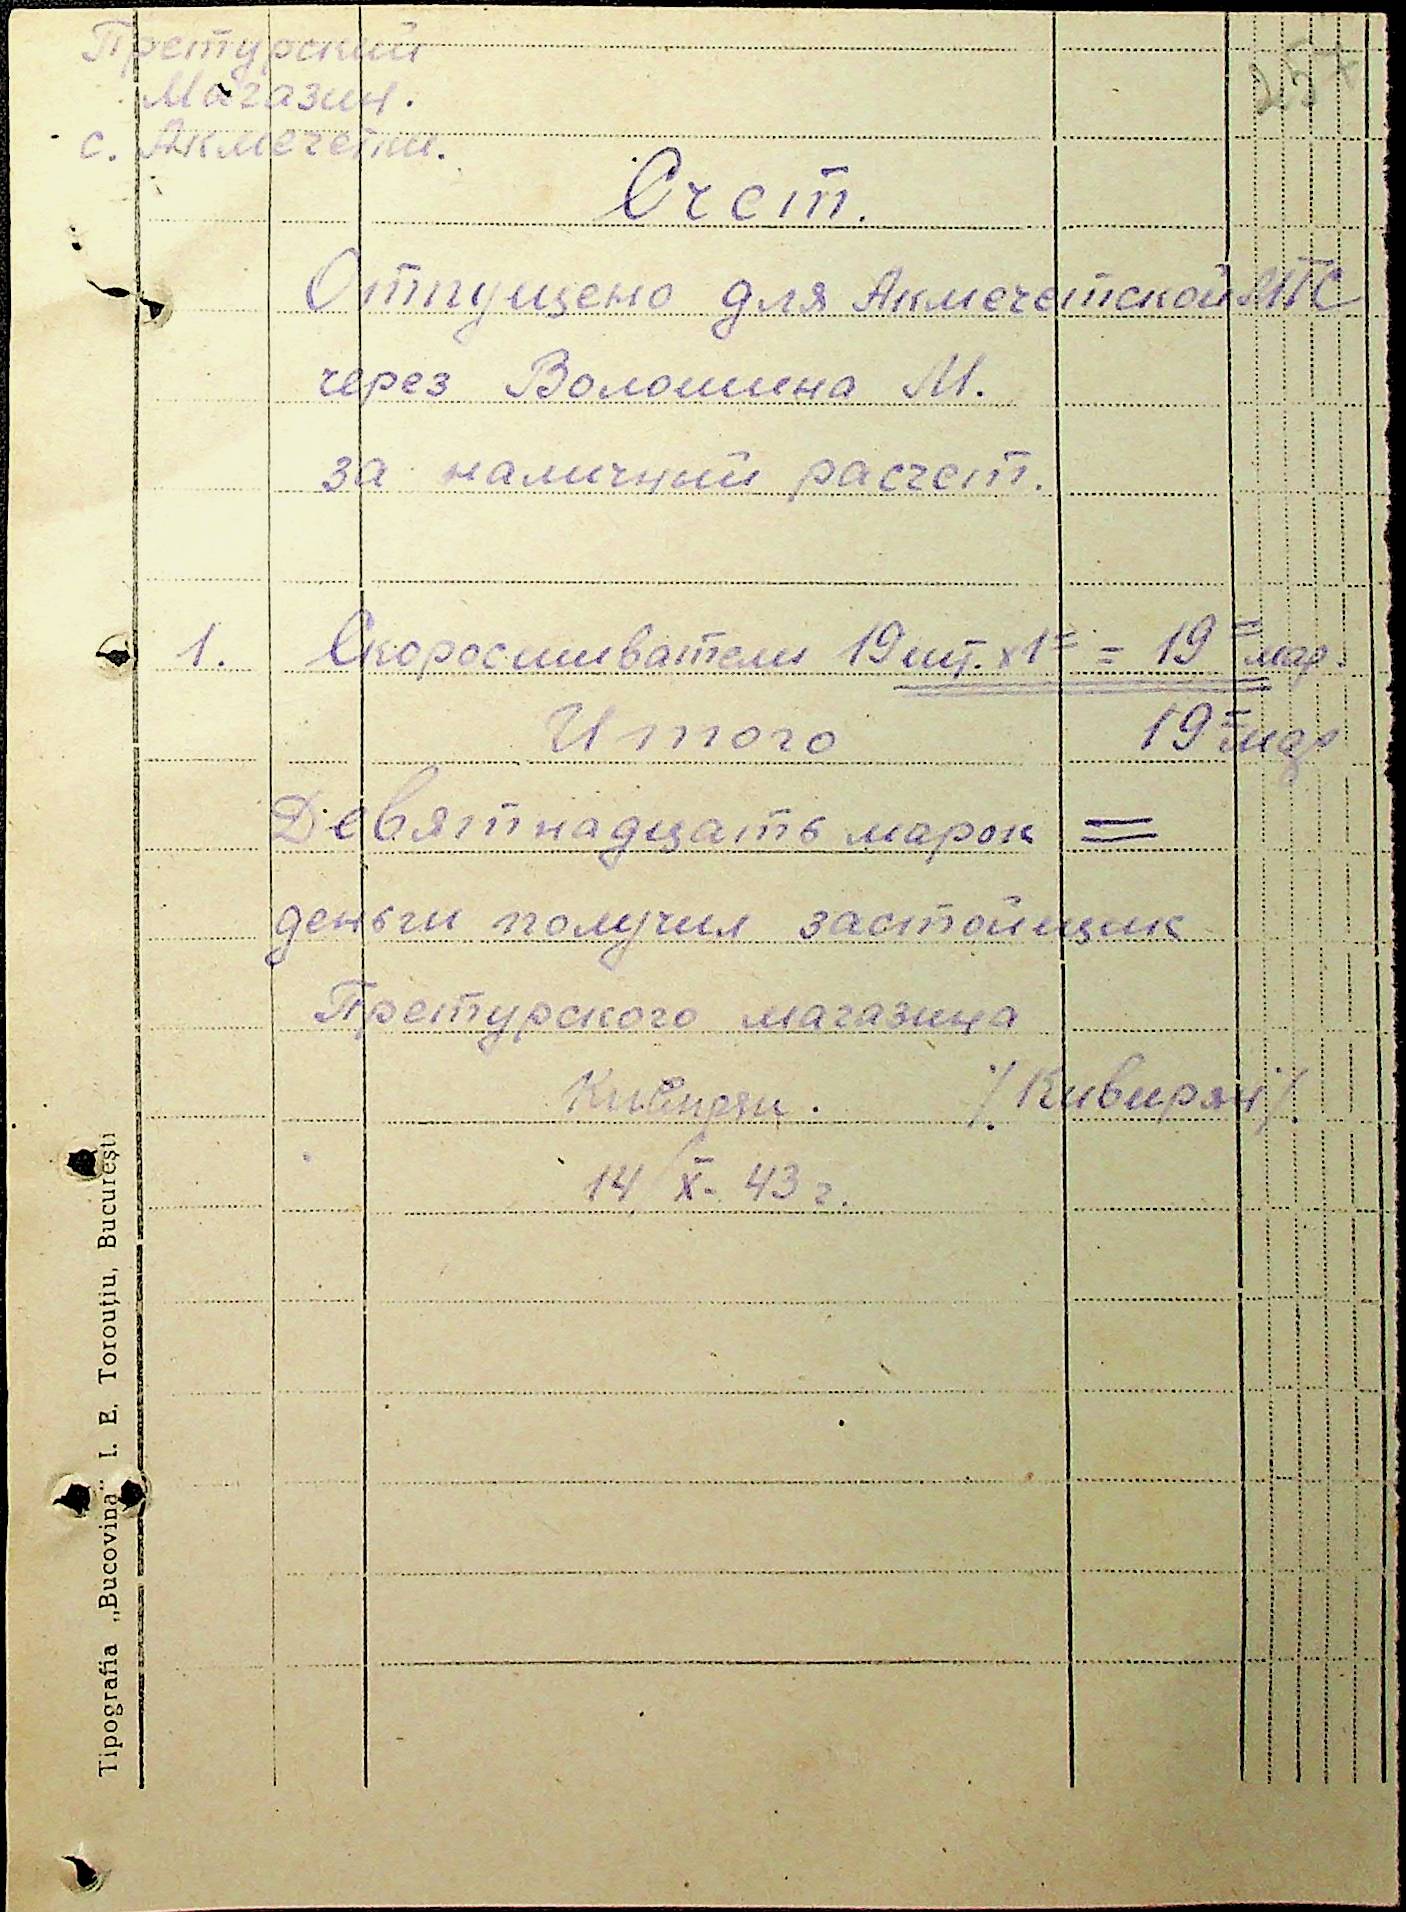 Претурский
Магазин.
с. Акмечетки.
257
Счет.
Отпущено для Акмечетской МТС
через Волошина М.
за наличний расчет.
1. Скоросшиватели 19 шт. х 1= = 19= мар.
Итого 19= мар
Девятнадцать марок =
деньги получил застойщик
Претурского магазина
Кивирян. /Кивирян/.
14/X- 43 г.
Tipografia „Bucovina" I. E. Torouțiu, București